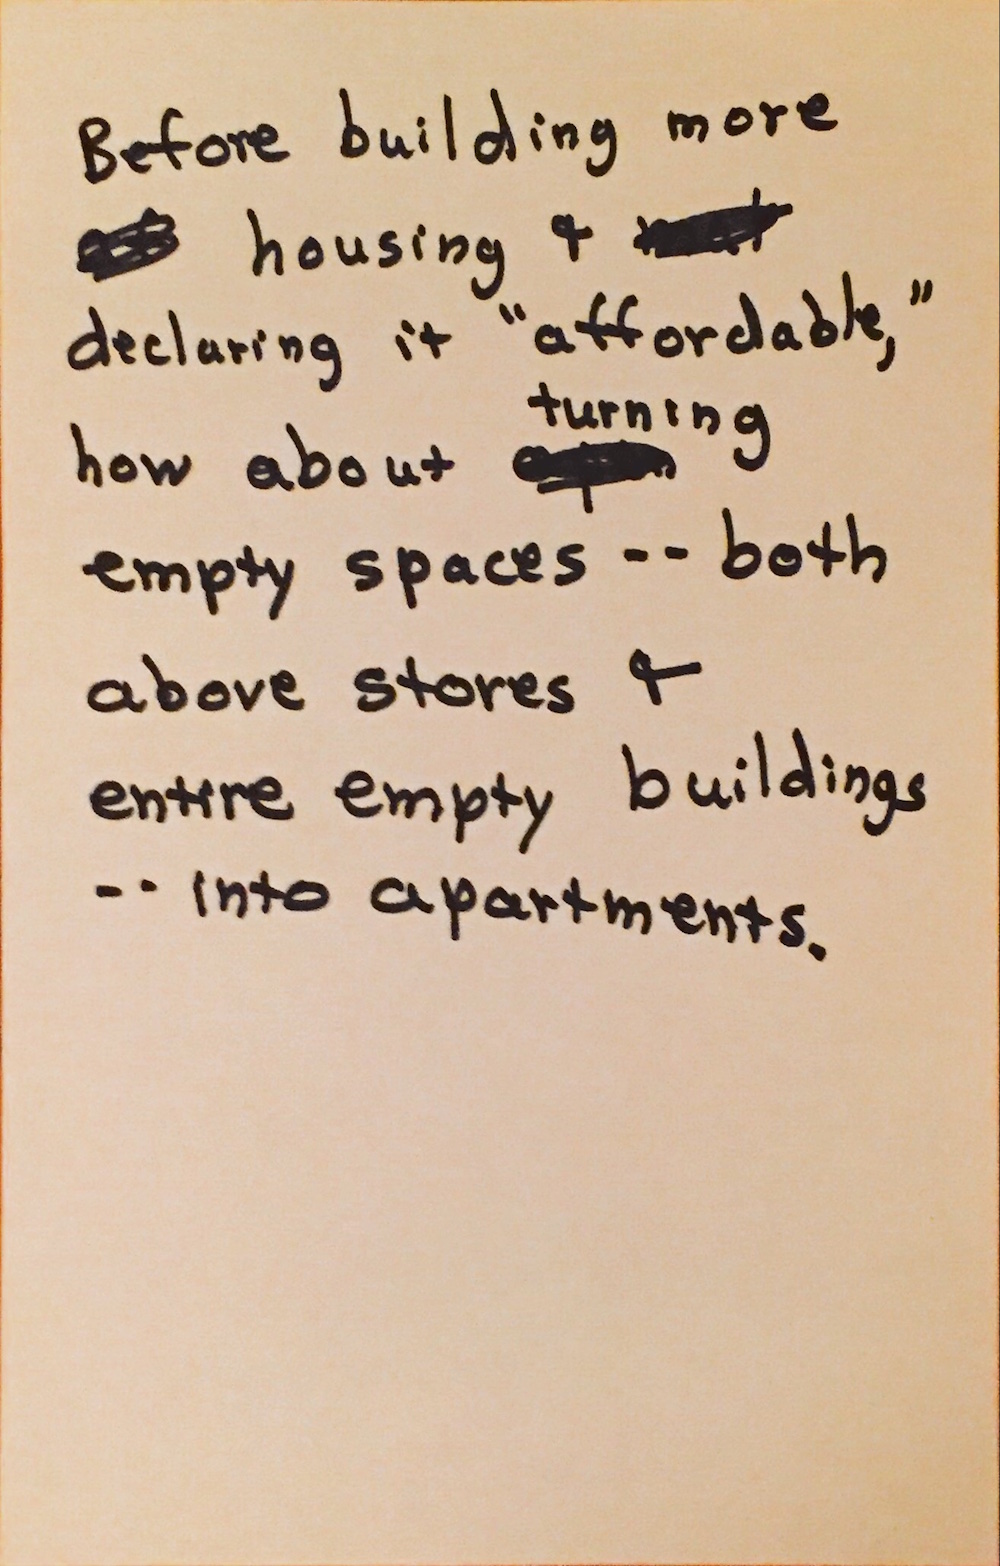 Before building more
housing & 
declaring it "affordable,"
turning
how about
empty spaces -- both
above stores &
entire empty buildings
-- into apartments.